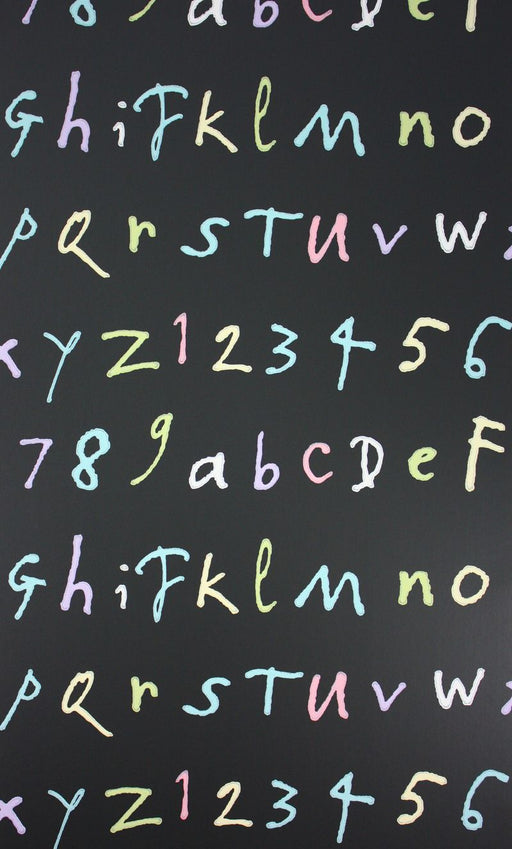 7 8 9 a b c D e F
G h i J k l M n o
p Q r s T U v w x
x y Z 1 2 3 4 5 6
7 8 9 a b c D e F
G h i J k l M n o
p Q r s T U v w x
x y Z 1 2 3 4 5 6